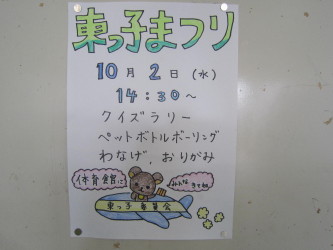 東っ子まつり
10月2日(水)
14:30~
クイズラリー
ペットボトルボーリング
わなげ、おりがみ
体育館に
みんなきてね
東っ子 集会